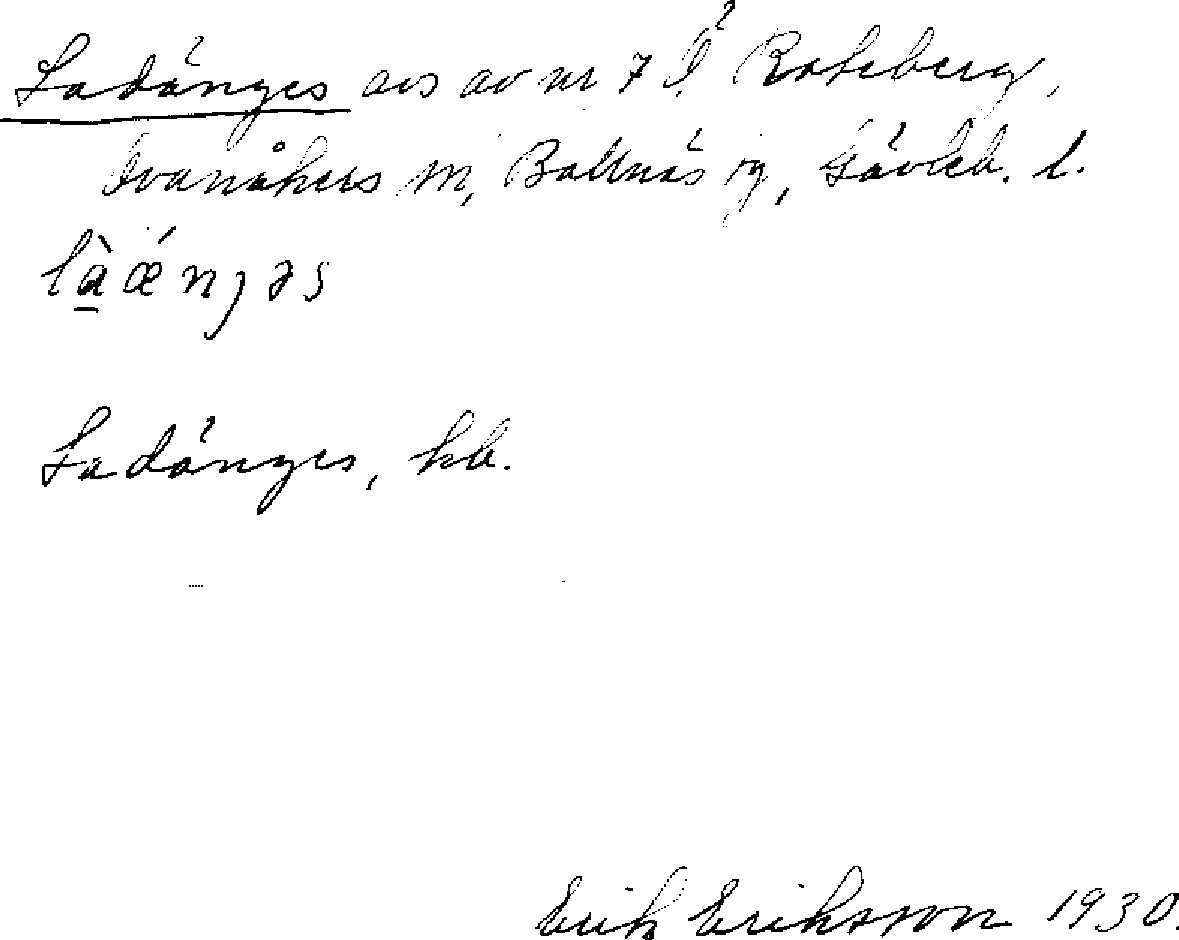 Ladänges avs av nr 7 Ö Roteberg,
Svanåkers m, Bollnäs sg, Gävleb. l.
là̱ǽnȷəs
Ladänges, kb.
Erik Eriksson 1930.